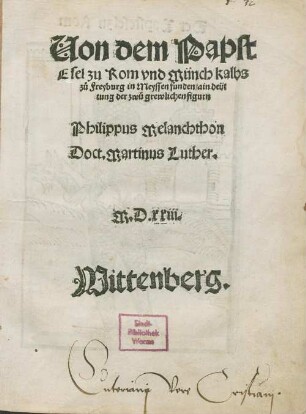 Von dem Papst
Esel zu Rom vnd Münch kalbs
zů Freyburg in Meyssen funden/ain deüt
tung der zwů grewlichen figurn
Philippus Melanchthon
Doct. Martinus Luther.
M.D.xxiii.
Wittenberg.
Stadt-
Bibliothek
Worms
Lutheriang vere Cristian